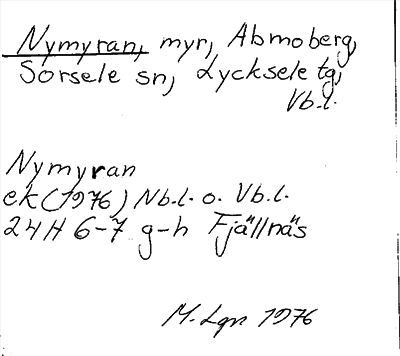 Nymyran, myr, Abmoberg,
Sorsele sn, Lycksele tg,
Vb.l.
Nymyran
ek (1976) Nb.l. o. Vb.l.
24H 6-7 g-h Fjällnäs
M. Lgn 1976